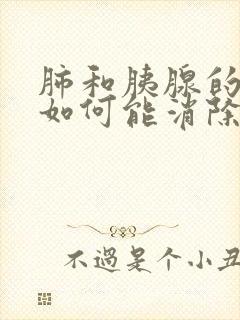 肺和胰腺的
如何能消除
不過是个小丑